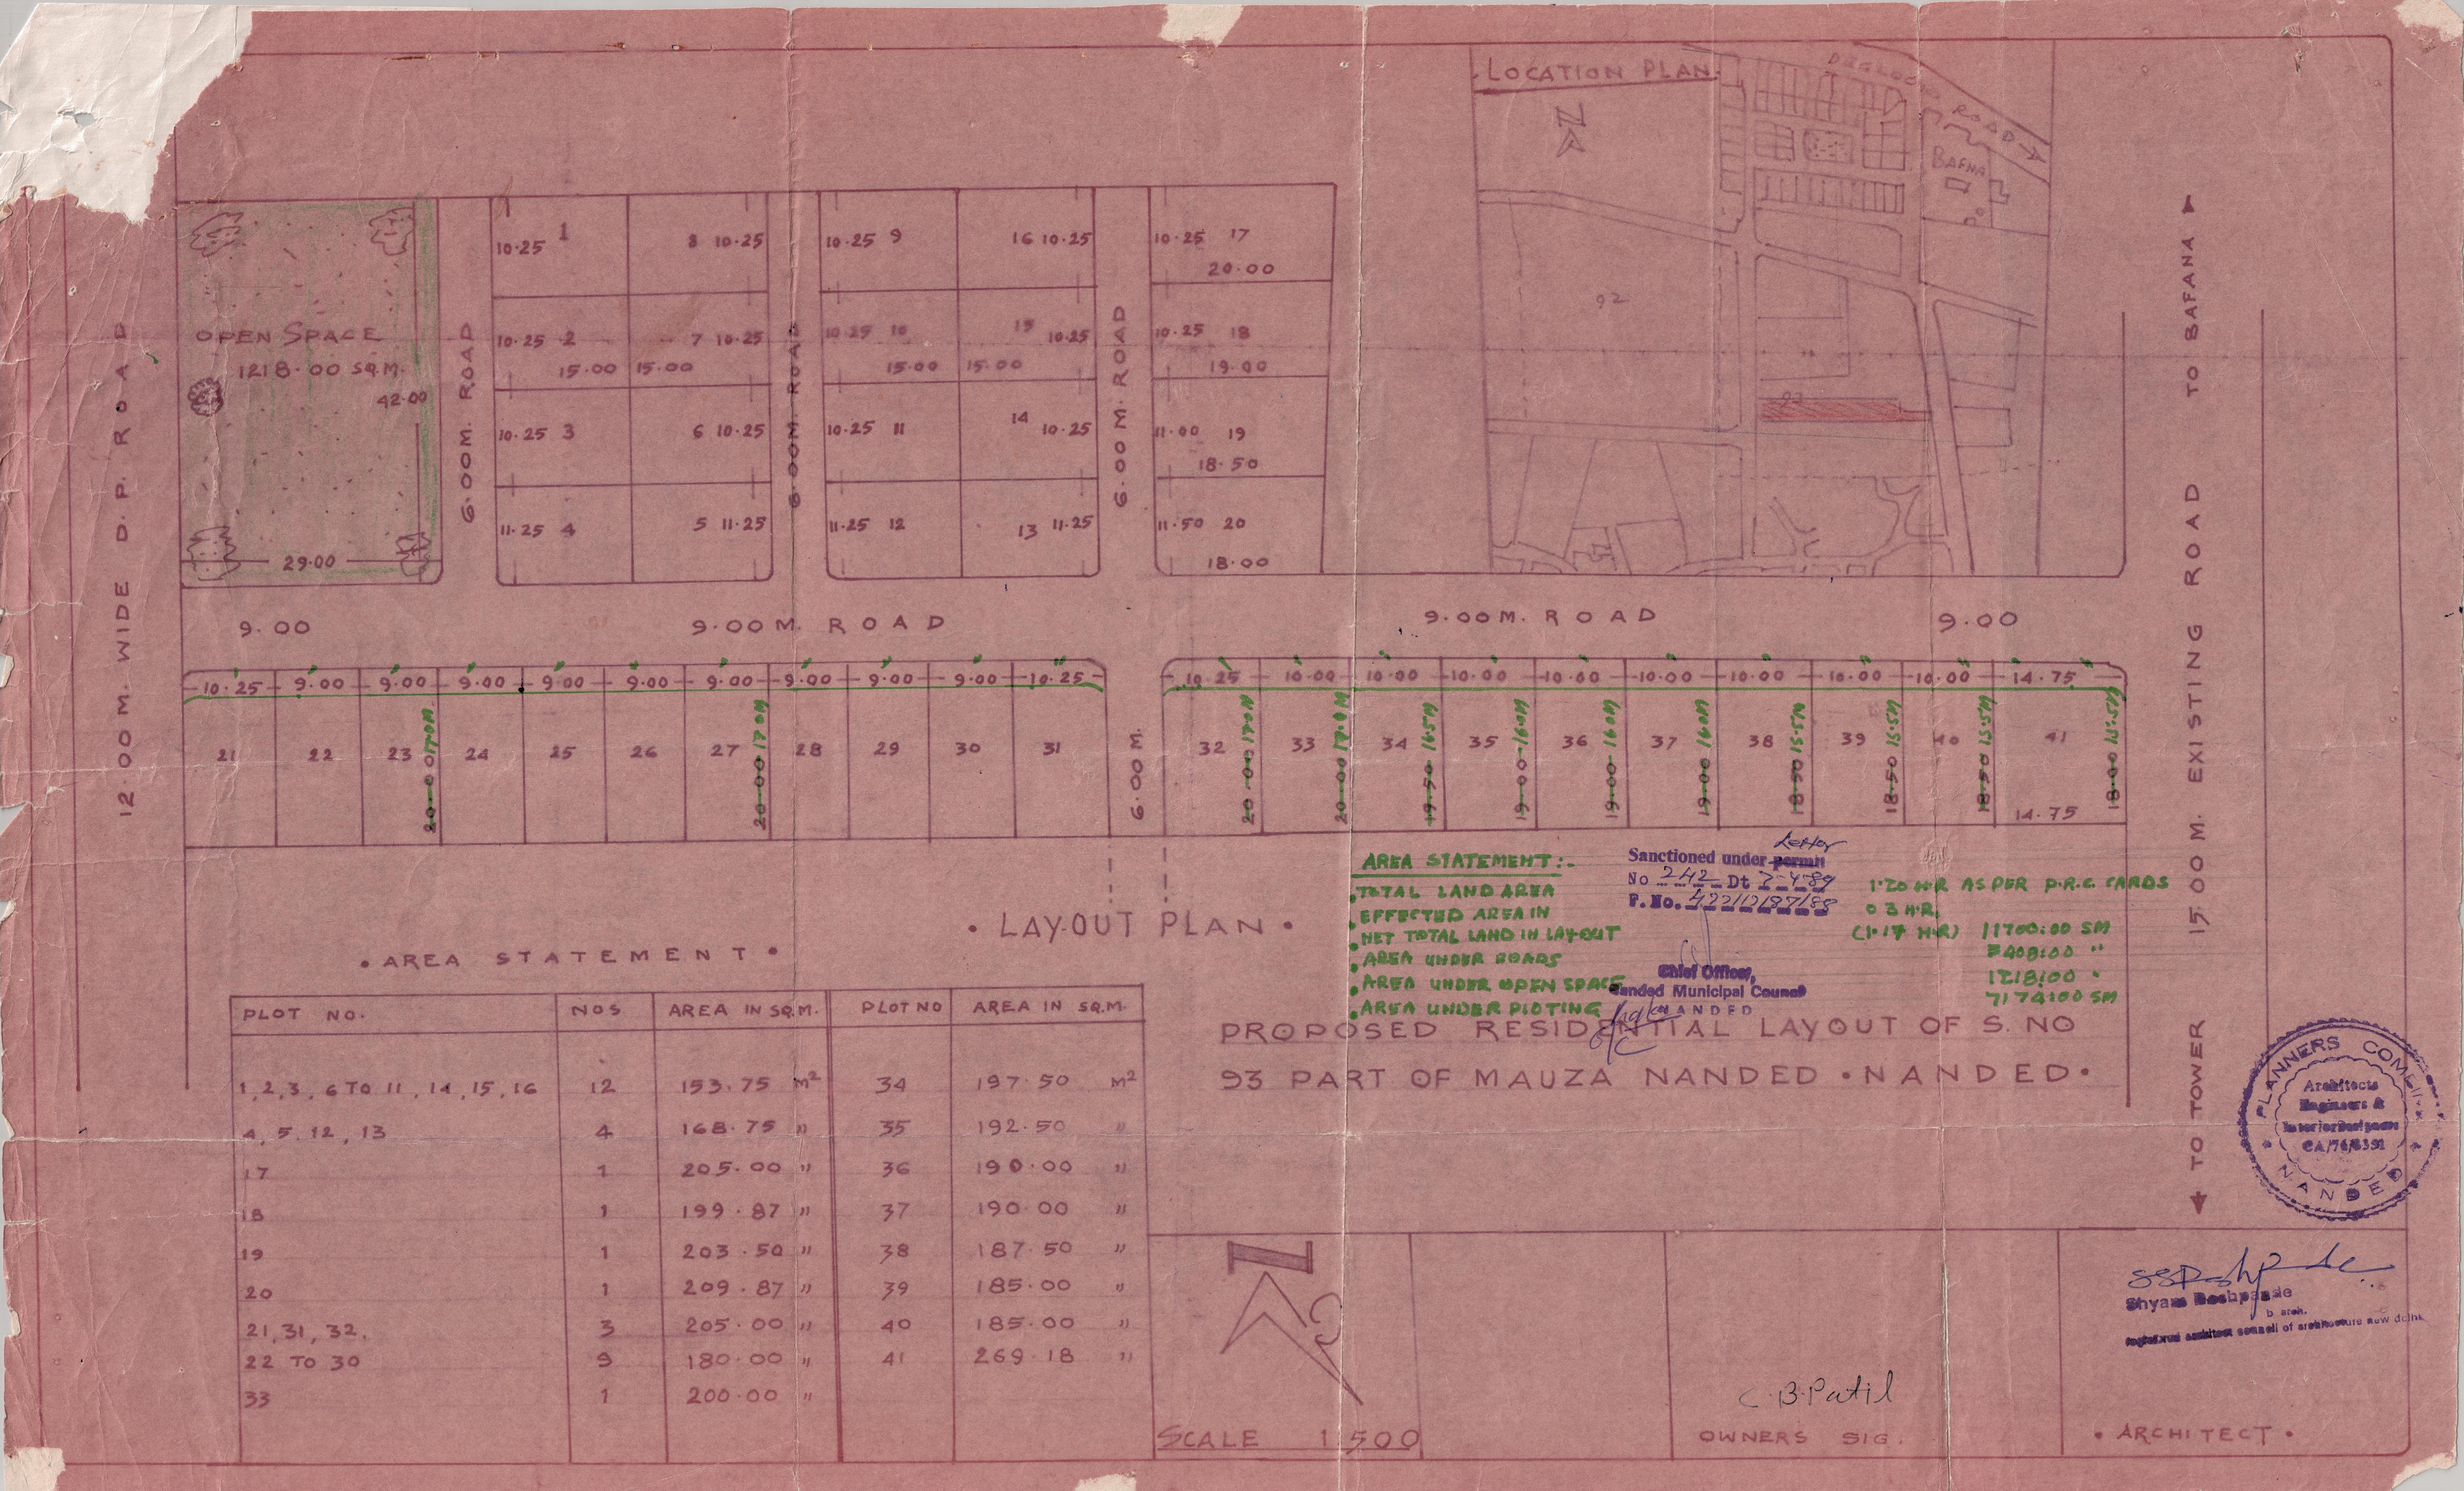 LOCATION PLAN
N
DEGLOOR ROAD
BAFNA
92
93
12.00 M. WIDE D.P. ROAD
OPEN SPACE
1218.00 SQ.M.
42.00
29.00
6.00M. ROAD
10.25 1
8 10.25
10.25 2
7 10.25
15.00 15.00
10.25 3
6 10.25
11.25 4
5 11.25
6.00M. ROAD
10.25 9
16 10.25
10.25 10
15 10.25
15.00 15.00
10.25 11
14 10.25
11.25 12
13 11.25
6.00 M. ROAD
10.25 17
20.00
10.25 18
19.00
11.00 19
18.50
11.50 20
18.00
TO BAFANA
15.00 M. EXISTING ROAD
TO TOWER
9.00
9.00 M. ROAD
9.00M. ROAD
9.00
10.25 9.00 9.00 9.00 9.00 9.00 9.00 9.00 9.00 9.00 10.25
10.25 10.00 10.00 10.00 10.00 10.00 10.00 10.00 10.00 14.75
21 22 23 24 25 26 27 28 29 30 31
20.00 17.0M
20.00 17.0M
6.00 M.
32 33 34 35 36 37 38 39 40 41
20.00 17.0M
20.00 17.0M
19.50 16.5M
19.00 16.0M
19.00 16.0M
19.00 16.0M
18.50 15.5M
18.50 15.5M
18.50 15.5M
18.00 15.5M
14.75
• LAY-OUT PLAN •
AREA STATEMENT :-
TOTAL LAND AREA 1.20 H.R AS PER P.R.C. CARDS
EFFECTED AREA IN 03 H.R.
NET TOTAL LAND IN LAY-OUT (1.17 H.R) 11700:00 SM
AREA UNDER ROADS 3408:00 "
AREA UNDER OPEN SPACE 1218:00 "
AREA UNDER PLOTING 7174:00 SM
Sanctioned under permit Letter
No 242 Dt 7-4-89
F. No. 422/12/87/88
Chief Officer,
Nanded Municipal Council
NANDED
PROPOSED RESIDENTIAL LAYOUT OF S. NO
93 PART OF MAUZA NANDED • NANDED •
• AREA STATEMENT •
PLOT NO. NOS AREA IN SQ.M. PLOT NO AREA IN SQ.M.
1,2,3, 6 TO 11, 14, 15, 16 12 153.75 M² 34 197.50 M²
4, 5, 12, 13 4 168.75 " 35 192.50 "
17 1 205.00 " 36 190.00 "
18 1 199.87 " 37 190.00 "
19 1 203.50 " 38 187.50 "
20 1 209.87 " 39 185.00 "
21, 31, 32. 3 205.00 " 40 185.00 "
22 TO 30 9 180.00 " 41 269.18 "
33 1 200.00 "
N
SCALE 1:500
C.B.Patil
OWNERS SIG.
PLANNERS COMBINE
Architects
Engineers &
Interior Designers
CA/76/3392
NANDED
SSDeshpande
Shyam Deshpande
b arch.
registered architect council of architecture new delhi
• ARCHITECT •